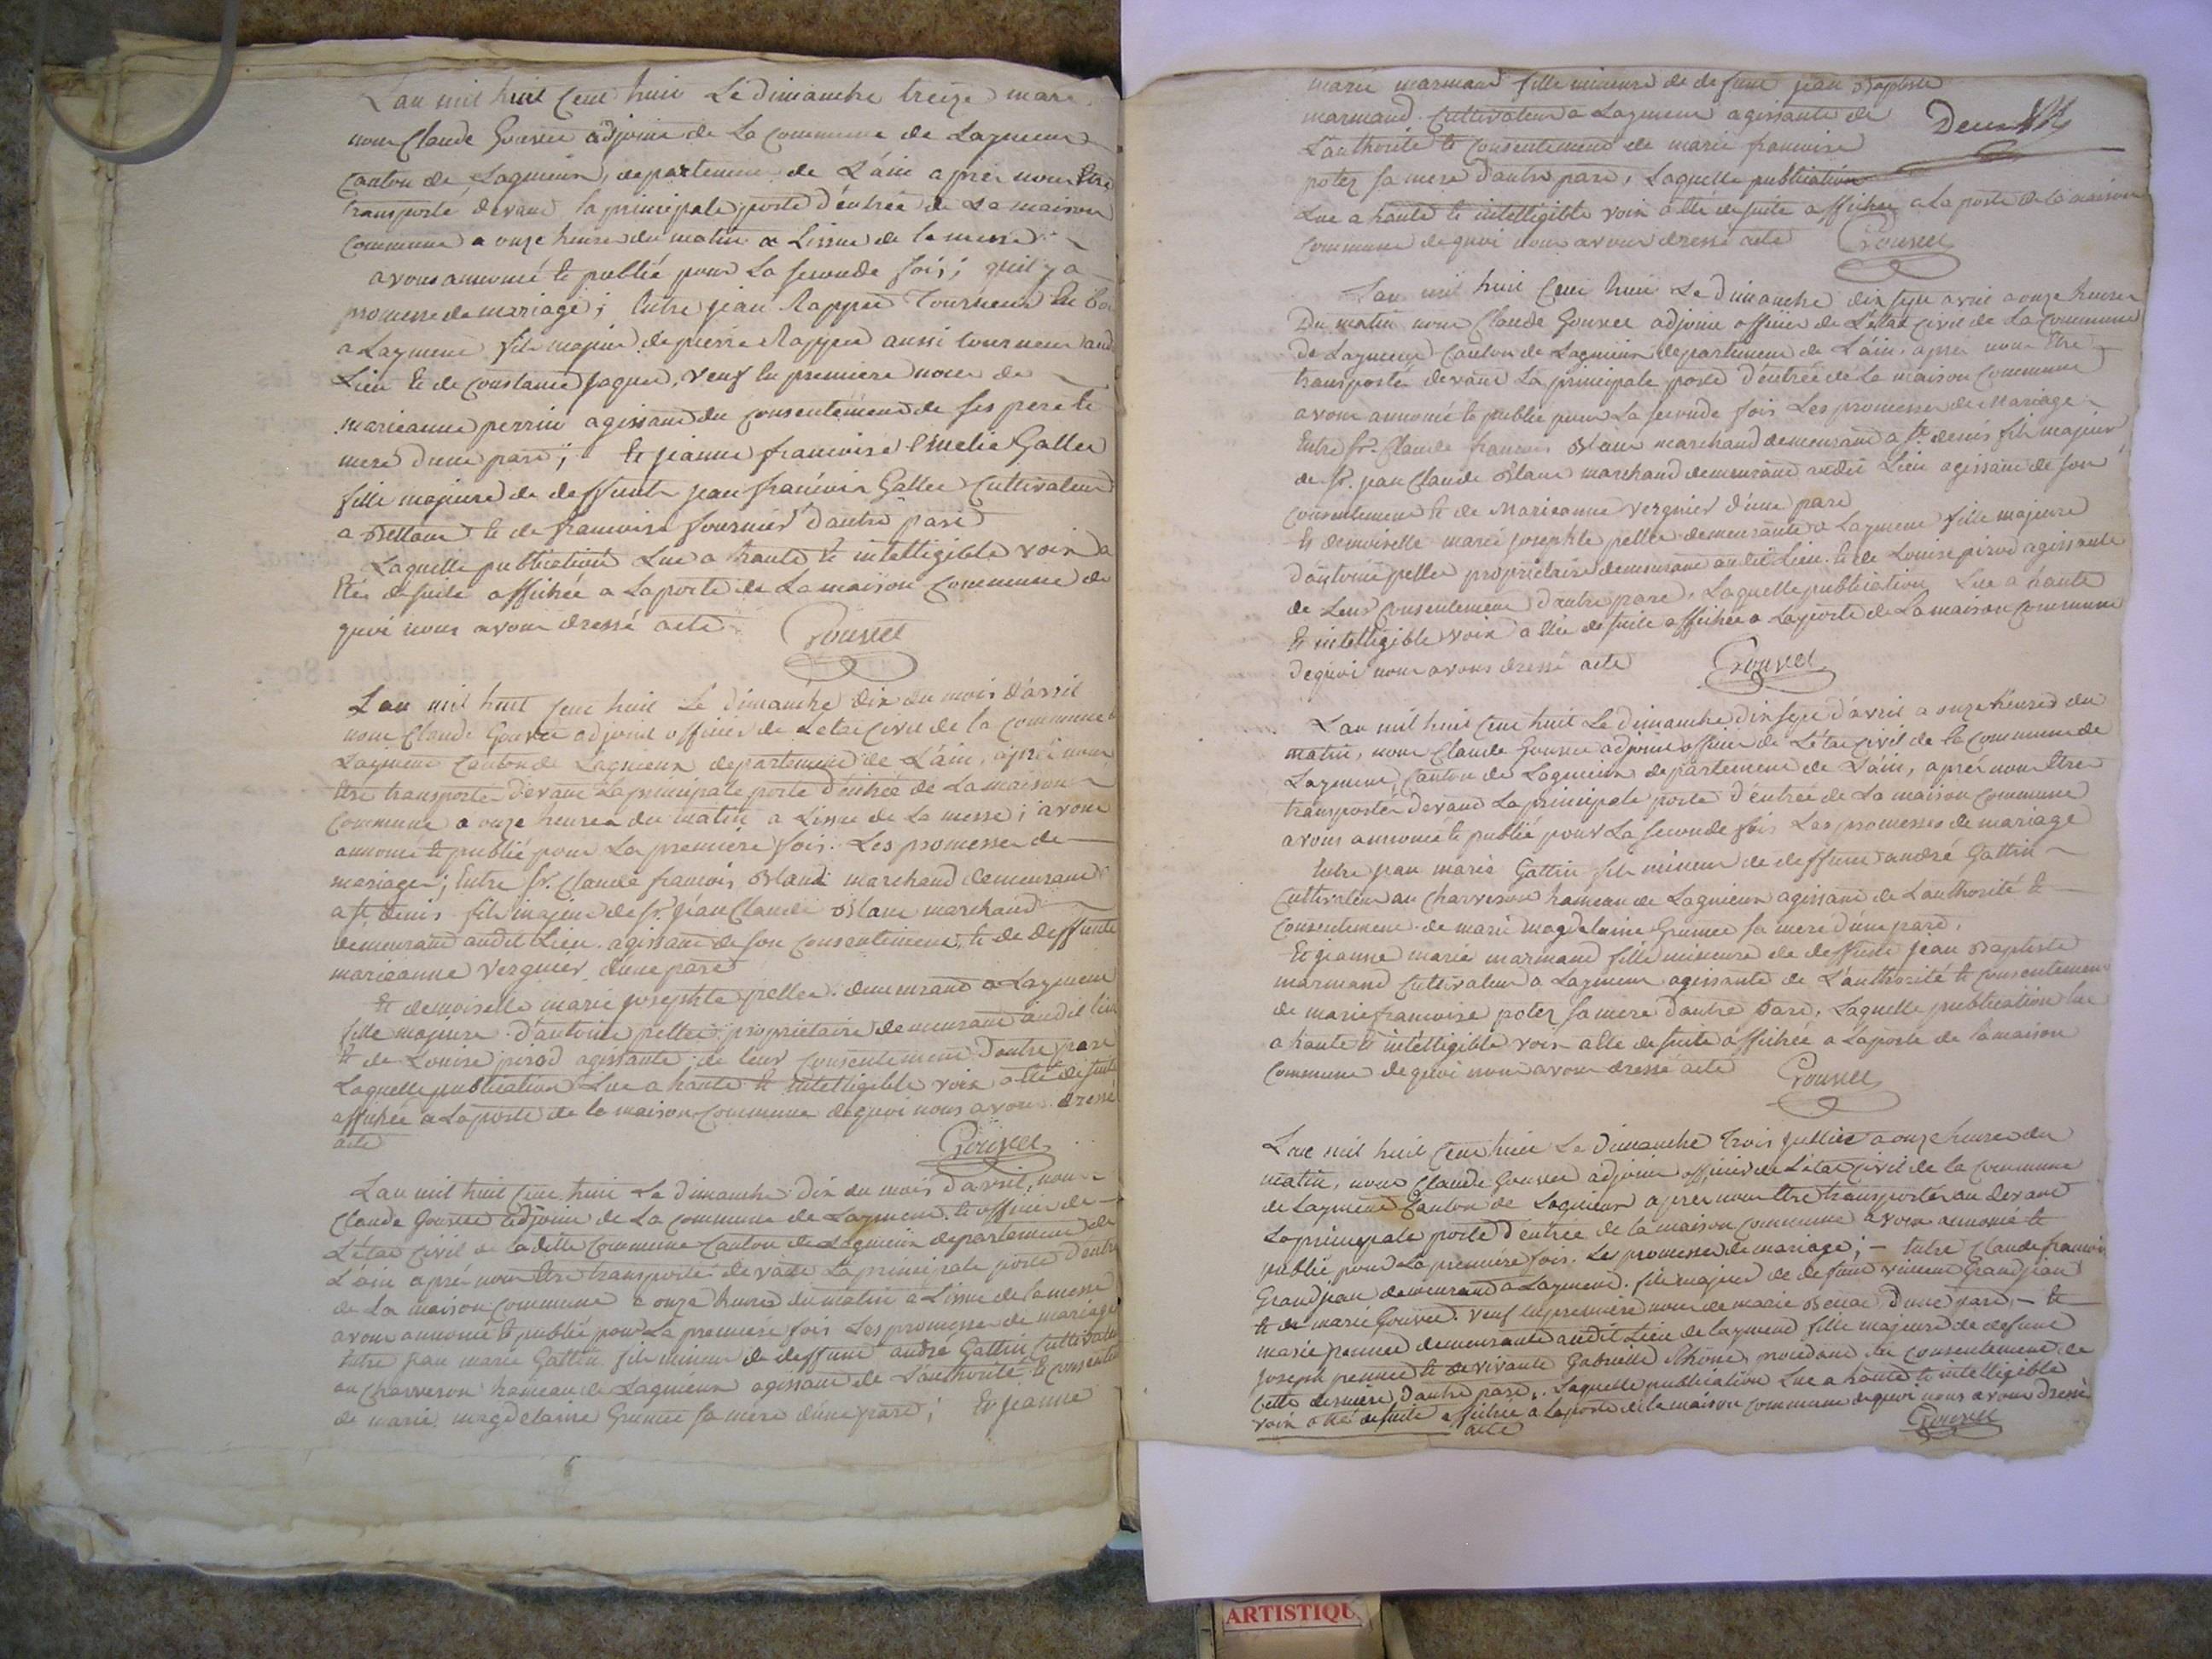 L'an mil huit Cent huit Le dimanche treize mars
nous Claude Gouvee adjoint de La Commune de Laymeux
Canton de Lagnieux, departement de L'ain apres nous Etre
transporté devant la principale porte d'éntrée de La maison
Commune a onze heures du matin a Lissue de la messe
avons annoncé et publié pour La seconde fois; quil y a
promesse de mariage; Entre jean Rappet Tourneur En
a Laymeux fils majeur de pierre Rappet aussi tourneur aud
Lieu et de Constance jaquet, veuf En premiere noces de
marieanne perrin agissant du Consentement de ses pere et
mere d'une part; Et jeanne francoise Emelie Gallee
fille majeure de deffunts jean francois Gallee Cultivateur
a Bettant et de francoise fournier d'autre part
Laquelle publication Lue a haute et intelligible voix a
Eté de suite affichée a La porte de La maison Commune de
quoi nous avons dressé acte Gouvee
L'an mil huit Cent huit Le dimanche dix du mois d'avril
nous Claude Gouvee adjoint officier de Létat Civil de la Commune
Laymeux Canton de Lagnieux departement de L'ain, après nous
Etre transporter devant La principale porte d'éntrée de La maison
Commune a onze heures du matin a Lissue de La messe; avons
annoncé et publié pour La premiere fois. Les promesses de
mariage; Entre sr. Claude francois Blanc marchand demeurant
a st denis fils majeur de sr. jean Claude Blanc marchand
demeurant audit Lieu. agissant de son Consentement, et de deffunte
marieanne vergnier d'une part
Et demoiselle marie josephte pellee demeurant a Laymeux
fille majeure d'antoine pellee proprietaire demeurant audit lieu
Et de Louise pirod agissante de leur Consentement d'autre part
Laquelle publication Lue a haute et intelligible voix a Eté de suite
affichée a La porte de la maison Commune de quoi nous avons dressé
acte Gouvee
L'an mil huit Cent huit Le dimanche dix du mois d'avril, nous
Claude Gouvee adjoint de La Commune de Laymeux et officier de
L'état Civil de ladite Commune Canton de Lagnieux departement de
L'ain après nous Etre transporté devant La principale porte d'entré
de La maison Commune a onze heures du matin a Lissue de la messe
avons annoncé et publié pour La premiere fois Les promesses de mariage
Entre jean marie Gattin fils mineur de deffunt andré Gattin Cultivateur
au Charveron hameau de Lagnieux agissant de L'authorité et Consentem
de marie magdelaine Grumee sa mere d'une part; Et jeanne
marie marmand fille mineure de defunt jean Baptiste
marmand Cultivateur a Laymeux agissante de
L'authorité et Consentement de marie francoise
potez sa mere d'autre part, Laquelle publication
Deux
Lue a haute et intelligible voix a Eté de suite affichée a La porte de la maison
Commune de quoi nous avons dressé acte Gouvee
L'an mil huit Cent huit Le dimanche dix sept avril a onze heures
Du matin nous Claude Gouvee adjoint officier de L'état Civil de La Commune
De Laymeux Canton de Lagnieux departement de L'ain. après nous Etre
transportés devant La principale porte d'éntrée de la maison Commune
avons annoncé et publié pour La seconde fois Les promesses de Mariage
Entre Sr. Claude francois Blanc marchand demeurant a st. denis fils majeur
de Sr. jean Claude Blanc marchand demeurant audit Lieu agissant de son
Consentement et de Marieanne vergnier d'une part
Et demoiselle marie josephte pellee demeurante a Laymeux fille majeure
d'antoine pellee proprietaire demeurant audit Lieu. et de Louise pirod agissante
de Leur Consentement d'autre part, Laquelle publication Lue a haute
Et intelligible voix a Eté de suite affichée a La porte de La maison Commune
de quoi nous avons dressé acte Gouvee
L'an mil huit Cent huit Le dimanche dix sept d'avril a onze heures du
matin, nous Claude Gouvee adjoint officier de L'état Civil de la Commune de
Laymeux, Canton de Lagnieux departement de L'ain, après nous Etre
transporter devant La principale porte d'éntrée de La maison Commune
avons annoncé et publié pour La seconde fois Les promesses de mariage
Entre jean marie Gattin fils mineur de deffunt andré Gattin
Cultivateur au Charveron hameau de Lagnieux agissant de L'authorité et
Consentement de marie magdelaine Grumee sa mere d'une part,
Et jeanne marie marmand fille mineure de deffunt jean Baptiste
marmand Cultivateur a Laymeux agissante de L'authorité et Consentement
de marie francoise potez sa mere d'autre part, Laquelle publication lue
a haute et intelligible voix a Eté de suite affichée a La porte de la maison
Commune de quoi nous avons dressé acte Gouvee
L'an mil huit Cent huit Le dimanche Trois juillet a onze heures du
matin, nous Claude Gouvee adjoint officier de L'état Civil de la Commune
de Laymeux Canton de Lagnieux après nous Etre transportés au devant
La principale porte d'éntrée de la maison Commune avons annoncé et
publié pour La premiere fois. Les promesses de mariage; – Entre Claude francois
Grandjean demeurant a Laymeux. fils majeur de defunt vincent Grandjean
et de marie Gouvee. veuf En premiere noces de marie Benac d'une part, – et
marie pennee demeurante audit Lieu de laymeux fille majeure de defunt
joseph pennee et de vivante Gabrielle Rhône, procedant du Consentement de
Cette derniere d'autre part. Laquelle publication Lue a haute et intelligible
voix a Eté de suite affichée a La porte de la maison Commune de quoi nous avons dressé
acte Gouvee
ARTISTIQU